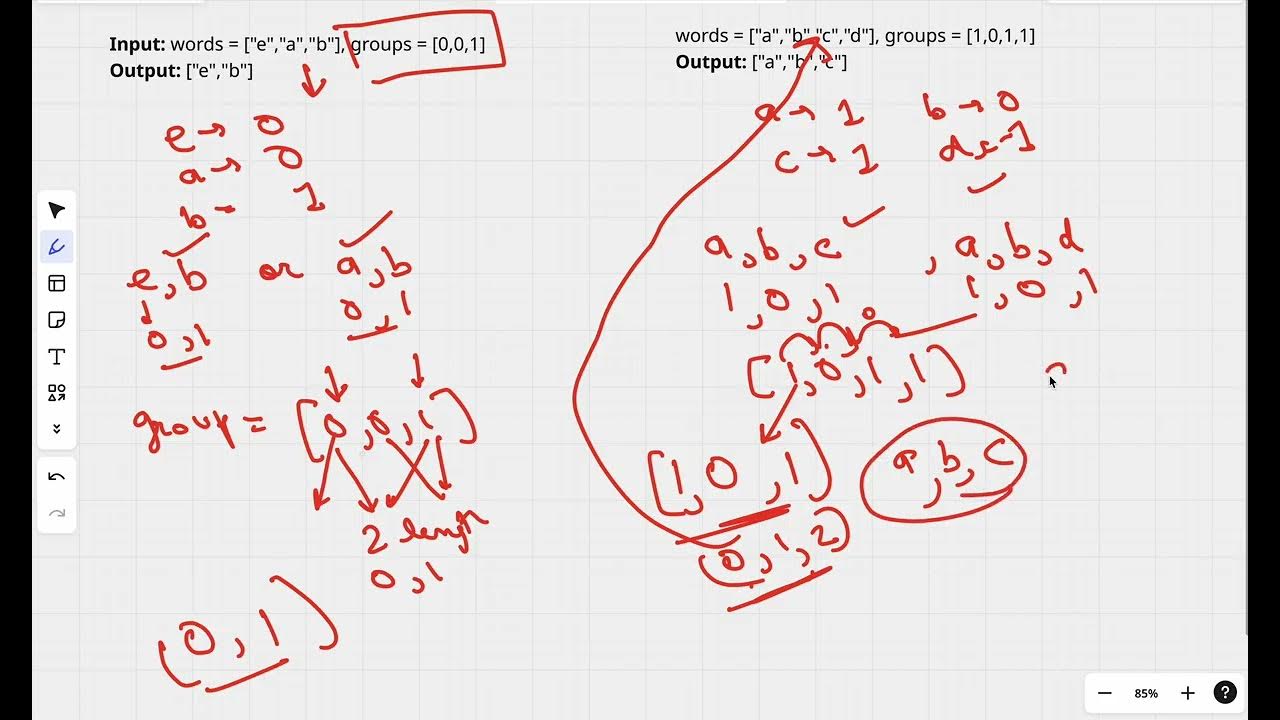 Input: words = ["e","a","b"], groups = [0,0,1]
Output: ["e","b"]
e → 0
a → 0
b - 1
e,b or a,b
0,1 0,1
group = [0,0,1]
2 length
0,1
(0,1)
words = ["a","b","c","d"], groups = [1,0,1,1]
Output: ["a","b","c"]
a → 1 b → 0
c → 1
a,b,c , a,b,d
1,0,1 1,0,1
0
[1,0,1,1]
[1,0,1) a,b,c
(0,1,2)
T
− 85% + ?